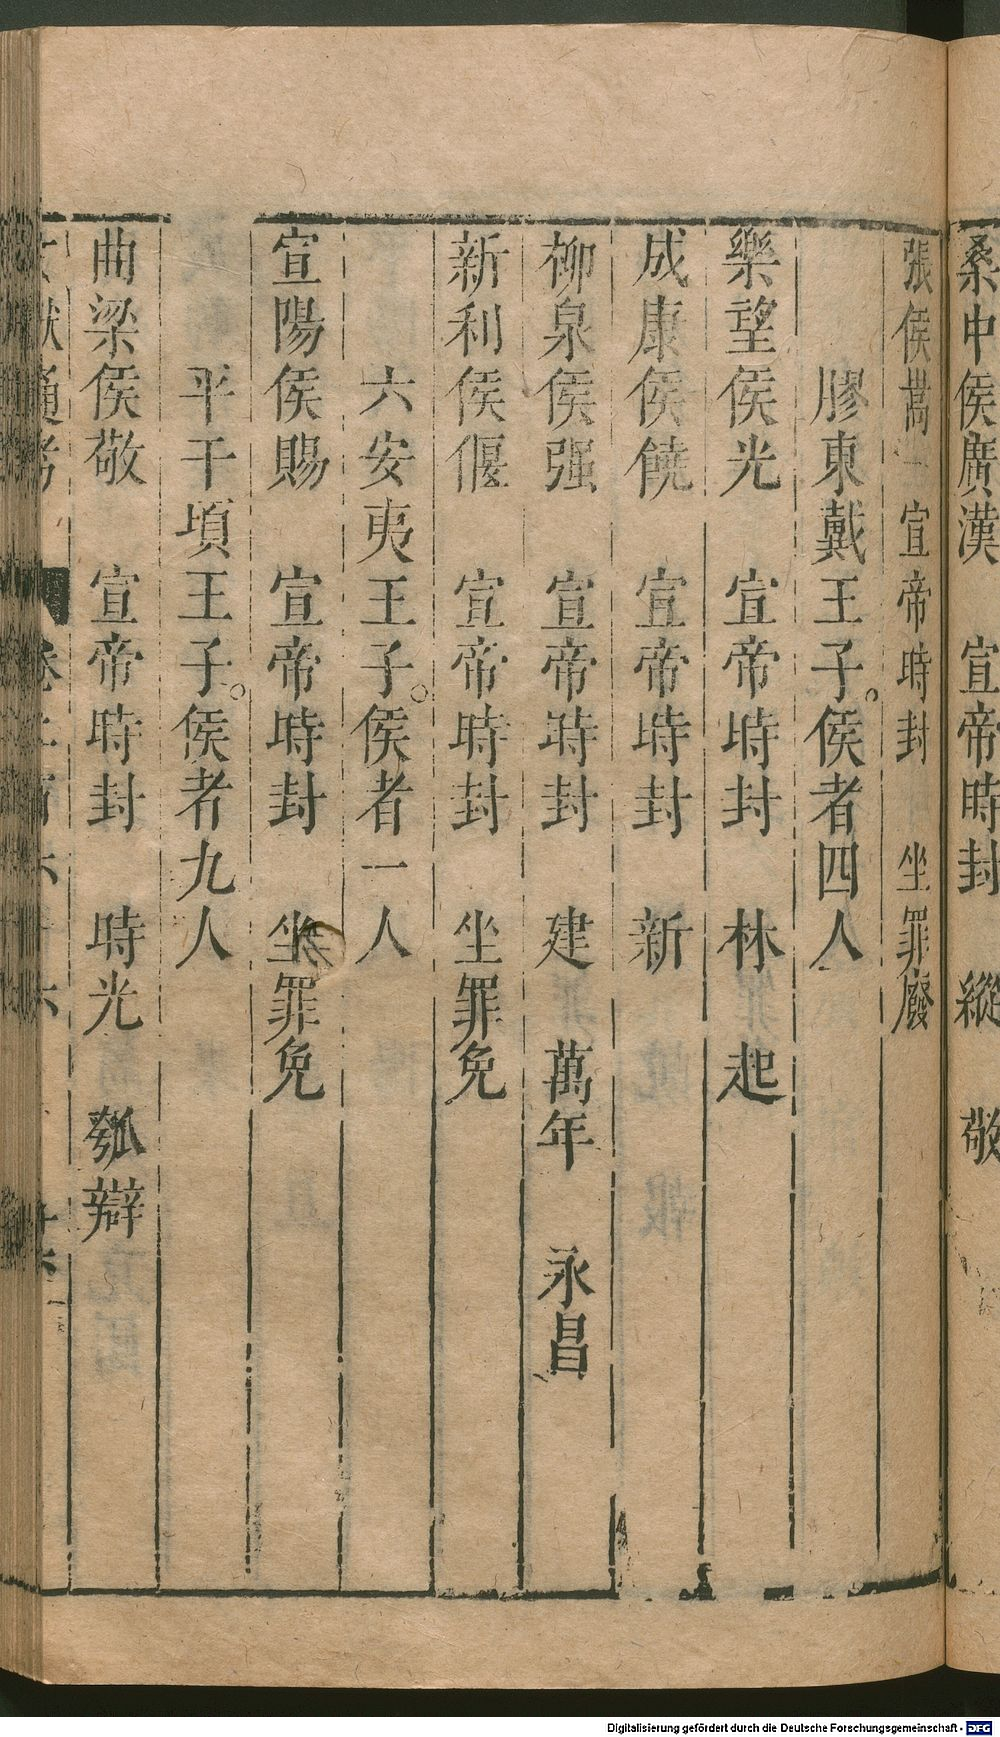 桑中侯廣漢　宣帝時封　縱　敬
張侯嵩　宣帝時封　坐罪廢
膠東戴王子。侯者四人
樂望侯光　宣帝時封　林　起
成康侯饒　宣帝時封　新
柳泉侯强　宣帝時封　建　萬年　永昌
新利侯偃　宣帝時封　坐罪免
六安夷王子。侯者一人
宣陽侯賜　宣帝時封　坐罪免
平干頃王子。侯者九人
曲梁侯敬　宣帝時封　時光　瓡辯
Digitalisierung gefördert durch die Deutsche Forschungsgemeinschaft - DFG